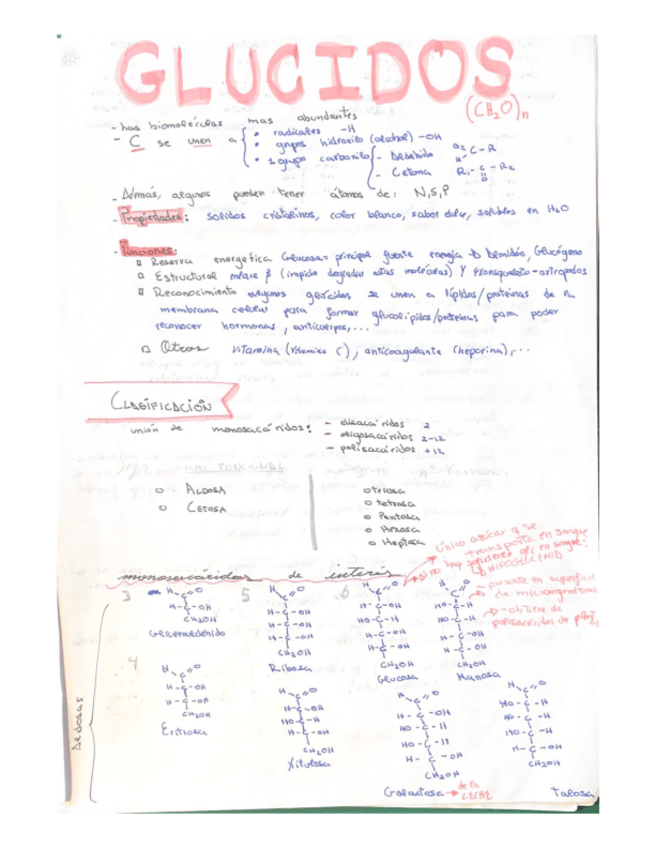 GLUCIDOS
(CH₂O)n
- Las biomoléculas mas abundantes
- C se unen a
• radicales -H
• grupos hidroxilo (alcohol) -OH
• 1 grupo carbonilo
- Aldehído
C-R
- Cetona
R₁-C-R₂
O
- Además, algunos pueden tener átomos de: N,S,P
- Propiedades: solidos cristalinos, color blanco, sabor dulce, solubles en H₂O
- Funciones:
Reserva energetica Glucosa = principal fuente energía → Almidón, Glucógeno
Estructural enlace β (impide degradar estas moléculas) y exoesqueleto-artropodos
Reconocimiento algunos glúcidos se unen a lípidos/proteinas de la
membrana celular para formar glucolipidos/proteinas para poder
reconocer hormonas, anticuerpos,...
Otros vitamina (vitamina C), anticoagulante (heparina),...
CLASIFICACIÓN
unión de monosacáridos:
- disacáridos 2
- oligosacáridos 2-12
- polisacáridos +12
FUNCIONAL
o ALDOSA
o CETOSA
o triosa
o tetrosa
o Pentosa
o Hexosa
o Heptosa
único azúcar q se
transporta en sangre
si no hay suficiente glc en sangre:
monosacáridos de interés
presente en superficie
de microorganismos
- obtiene de
polisacáridos de
Aldosas
3
H-C=O
H-C-OH
CH₂OH
Gliceraldehido
5
H-C=O
H-C-OH
H-C-OH
H-C-OH
CH₂OH
Ribosa
6
H-C=O
H-C-OH
HO-C-H
H-C-OH
H-C-OH
CH₂OH
Glucosa
H-C=O
HO-C-H
HO-C-H
H-C-OH
H-C-OH
CH₂OH
Manosa
4
H-C=O
H-C-OH
H-C-OH
CH₂OH
Eritrosa
H-C=O
H-C-OH
HO-C-H
H-C-OH
CH₂OH
Xilulosa
H-C=O
H-C-OH
HO-C-H
HO-C-H
H-C-OH
CH₂OH
Galactosa → de la LECHE
H-C=O
HO-C-H
HO-C-H
HO-C-H
H-C-OH
CH₂OH
Talosa